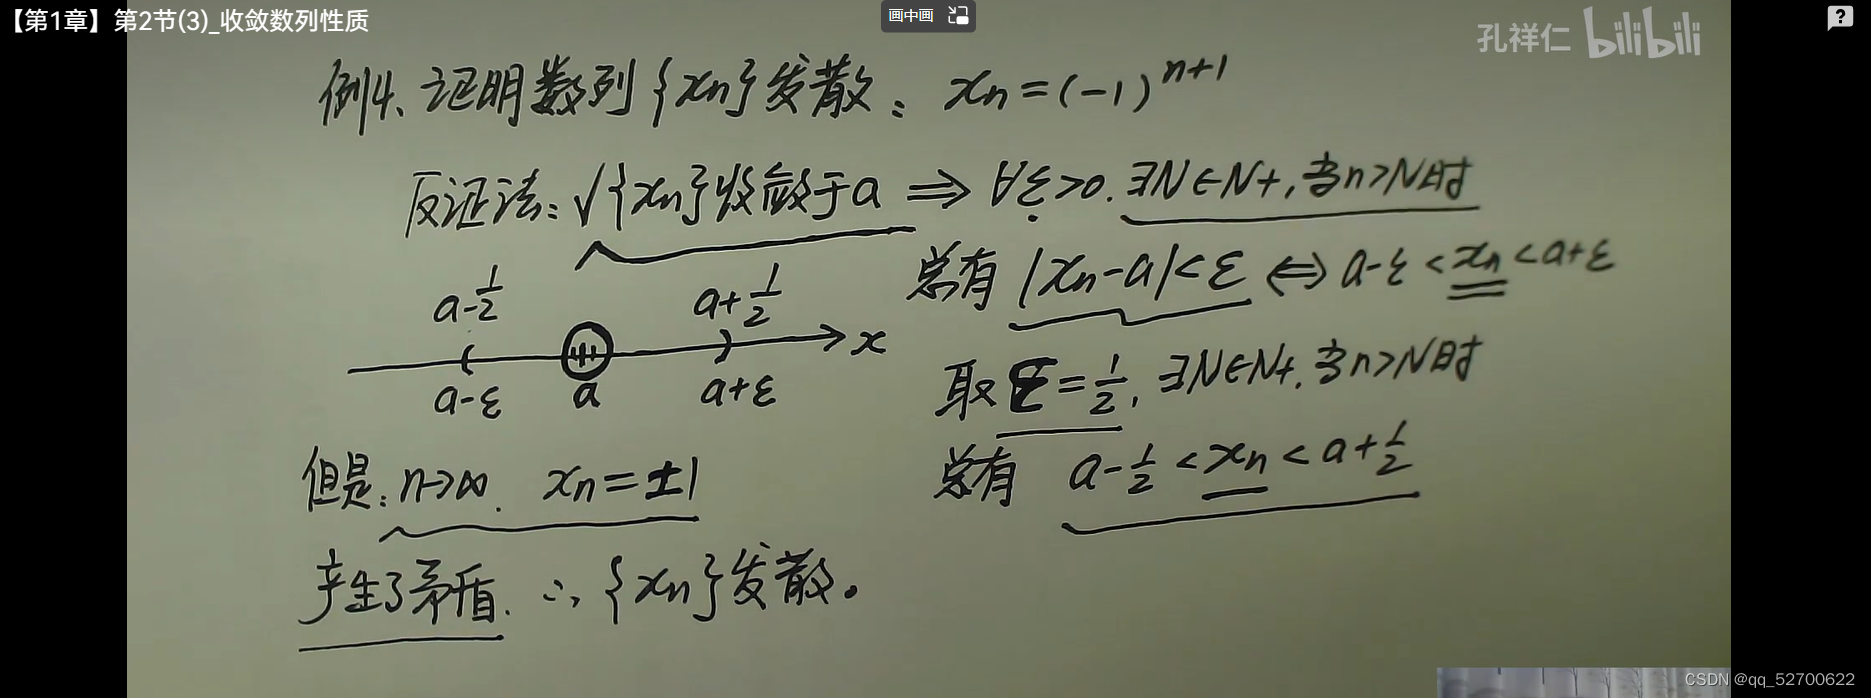 【第1章】第2节(3)_收敛数列性质
画中画
?
孔祥仁 bilibili
例4、证明数列{xn}发散：xn=(-1)^{n+1}
反证法：√{xn}收敛于a ⇒ ∀ε>0. ∃N∈N+, 当n>N时
总有 |xn-a|<ε ⇔ a-ε<xn<a+ε
a-1/2 a+1/2
x
a-ε a a+ε
取ε=1/2, ∃N∈N+, 当n>N时
总有 a-1/2<xn<a+1/2
但是: n→∞. xn=±1
产生了矛盾. ∴{xn}发散。
CSDN @qq_52700622